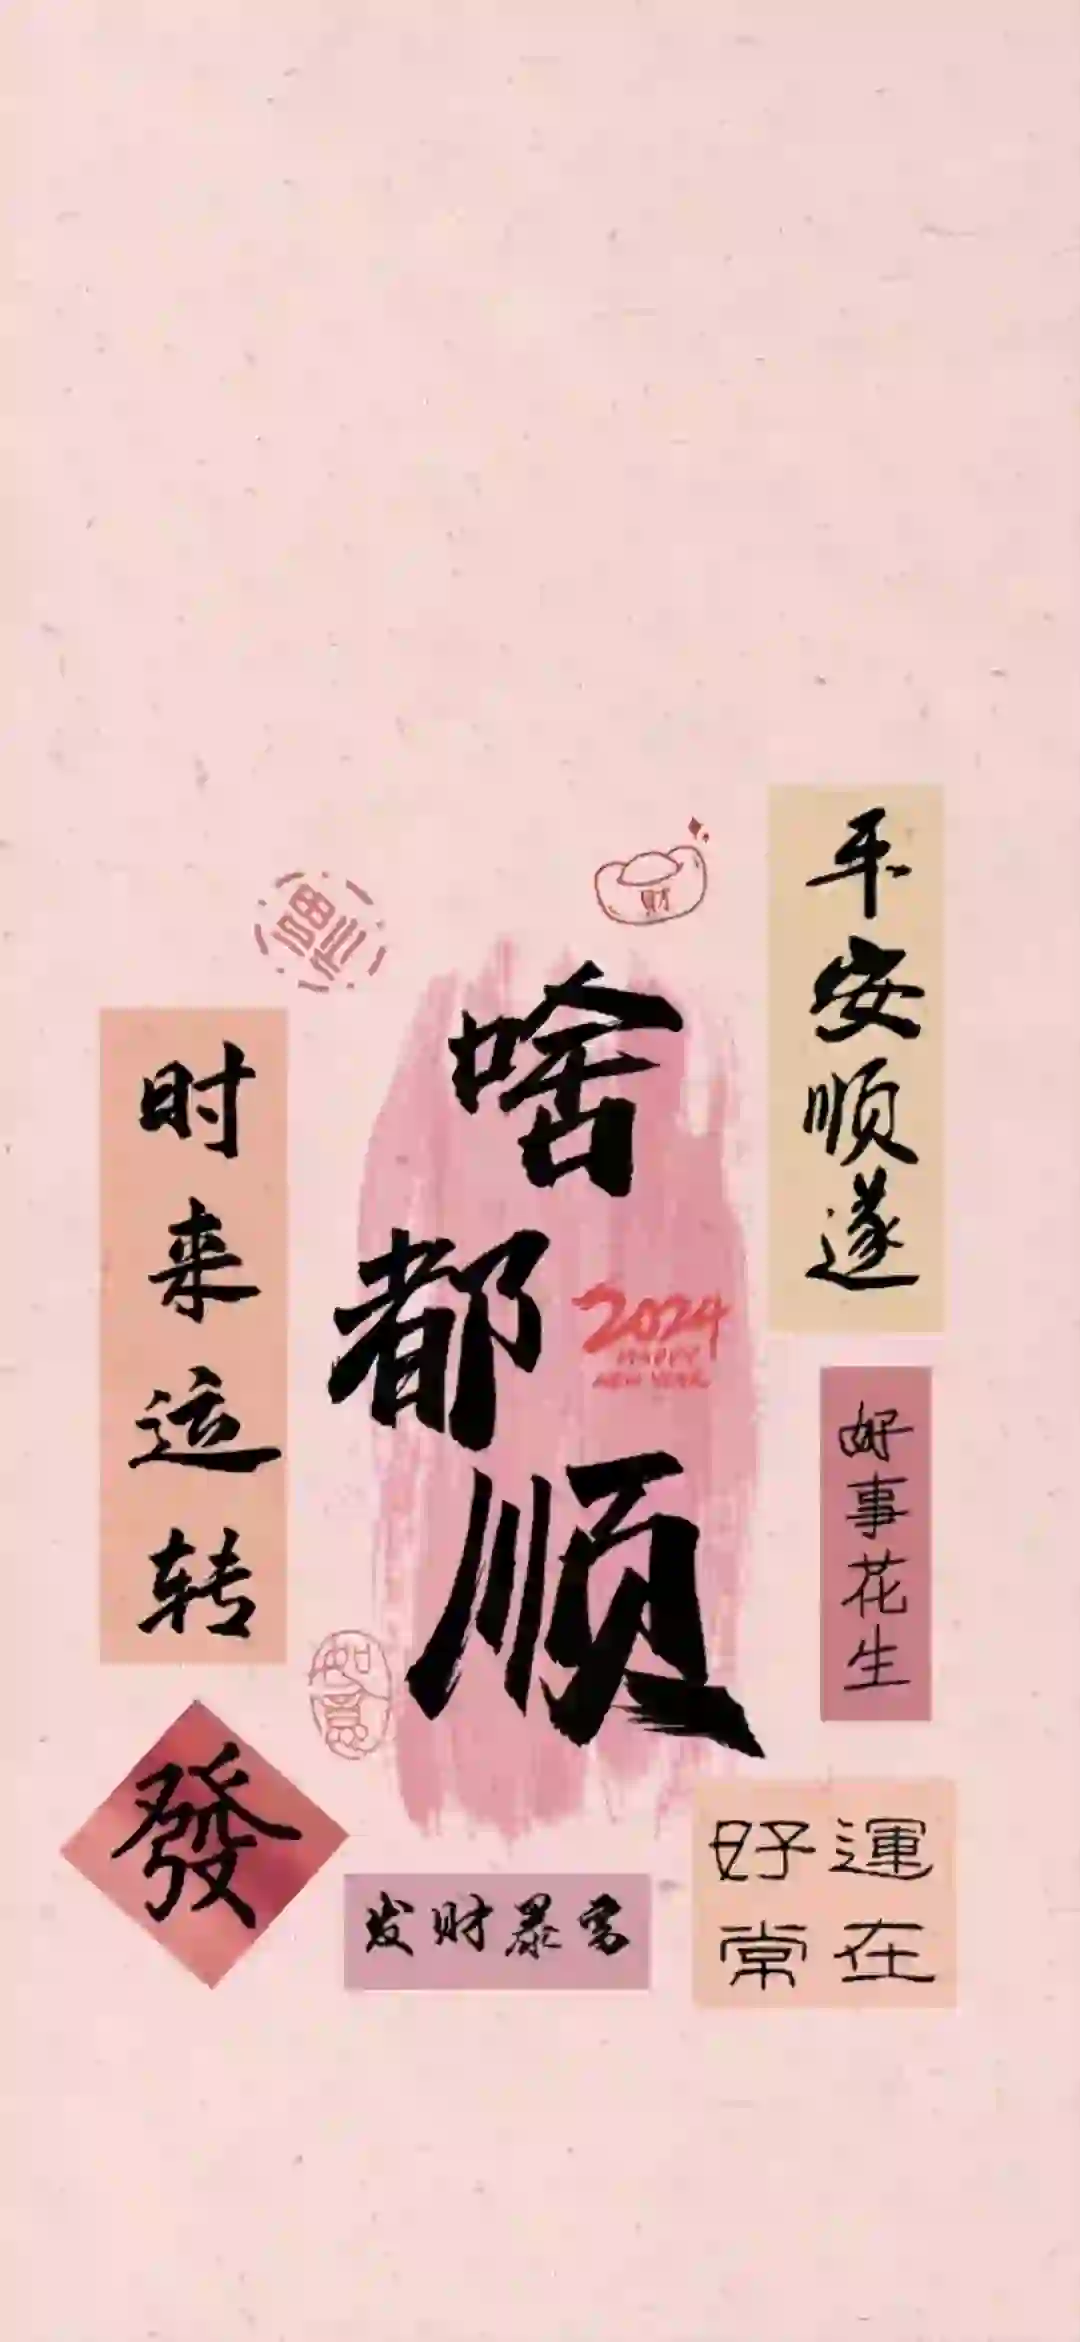 平安顺遂
財
福
啥都顺
时来运转
2024
HAPPY
NEW YEAR
好事花生
如意
發
好運
常在
发财暴富